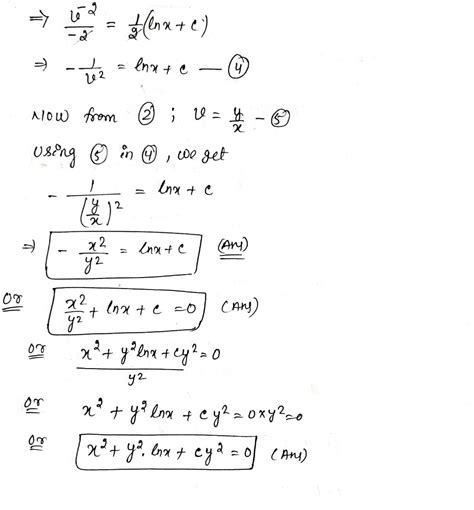 ⇒ v^-2/-2 = 1/2 (lnx + c)
⇒ - 1/v² = lnx + c — ④
Now from ② ; v = y/x — ⑤
Using ⑤ in ④, we get
- 1/(y/x)² = lnx + c
⇒ - x²/y² = lnx + c (Ans)
Or x²/y² + lnx + c = 0 (Ans)
Or (x² + y² lnx + cy²)/y² = 0
Or x² + y² lnx + cy² = 0xy² = 0
Or x² + y². lnx + cy² = 0 (Ans)